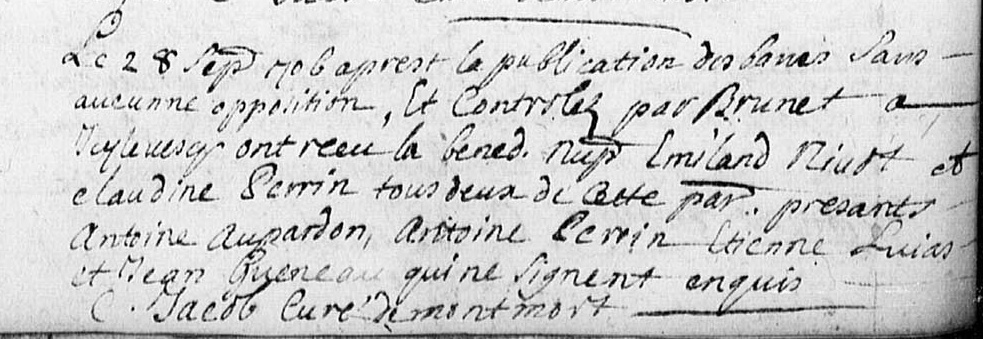 Le 28 Sep 1706 aprest la publication des bancs sans
aucunne opposition, Et Controlez par Brunet a
ont receu la bened. nup Emiland Niudt et
claudine Perrin tous deux de cette par. presants
Antoine Aupardon, Antoine Perrin Etienne Luias
et Jean Gueneau qui ne signent enquis
C. Jacob Curé de montmort